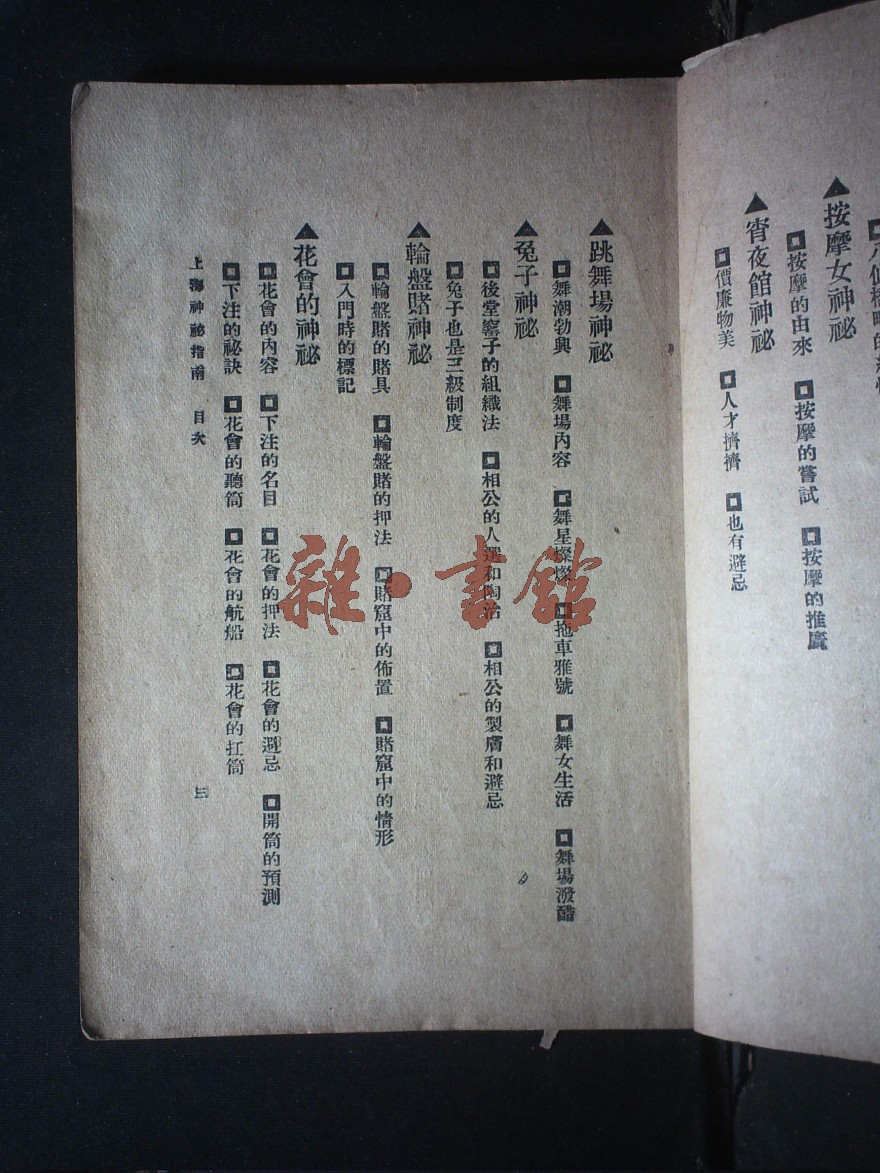 ▲按摩女神祕
◘按摩的由來 ◘按摩的嘗試 ◘按摩的推廣
▲宵夜館神祕
◘價廉物美 ◘人才擠擠 ◘也有避忌
▲跳舞場神祕
◘舞潮勃興 ◘舞場內容 ◘舞星燦燦 ◘拖車雅號 ◘舞女生活 ◘舞場潑醋
▲兔子神祕
◘後堂窰子的組織法 ◘相公的人選和陶冶 ◘相公的製膚和避忌
◘兔子也是三級制度
▲輪盤賭神祕
◘輪盤賭的賭具 ◘輪盤賭的押法 ◘賭窟中的佈置 ◘賭窟中的情形
◘入門時的標記
▲花會的神祕
◘花會的內容 ◘下注的名目 ◘花會的押法 ◘花會的避忌 ◘開筒的預測
◘下注的祕訣 ◘花會的聽筒 ◘花會的航船 ◘花會的扛筒
上海神祕指南 目次 三
雜·書館